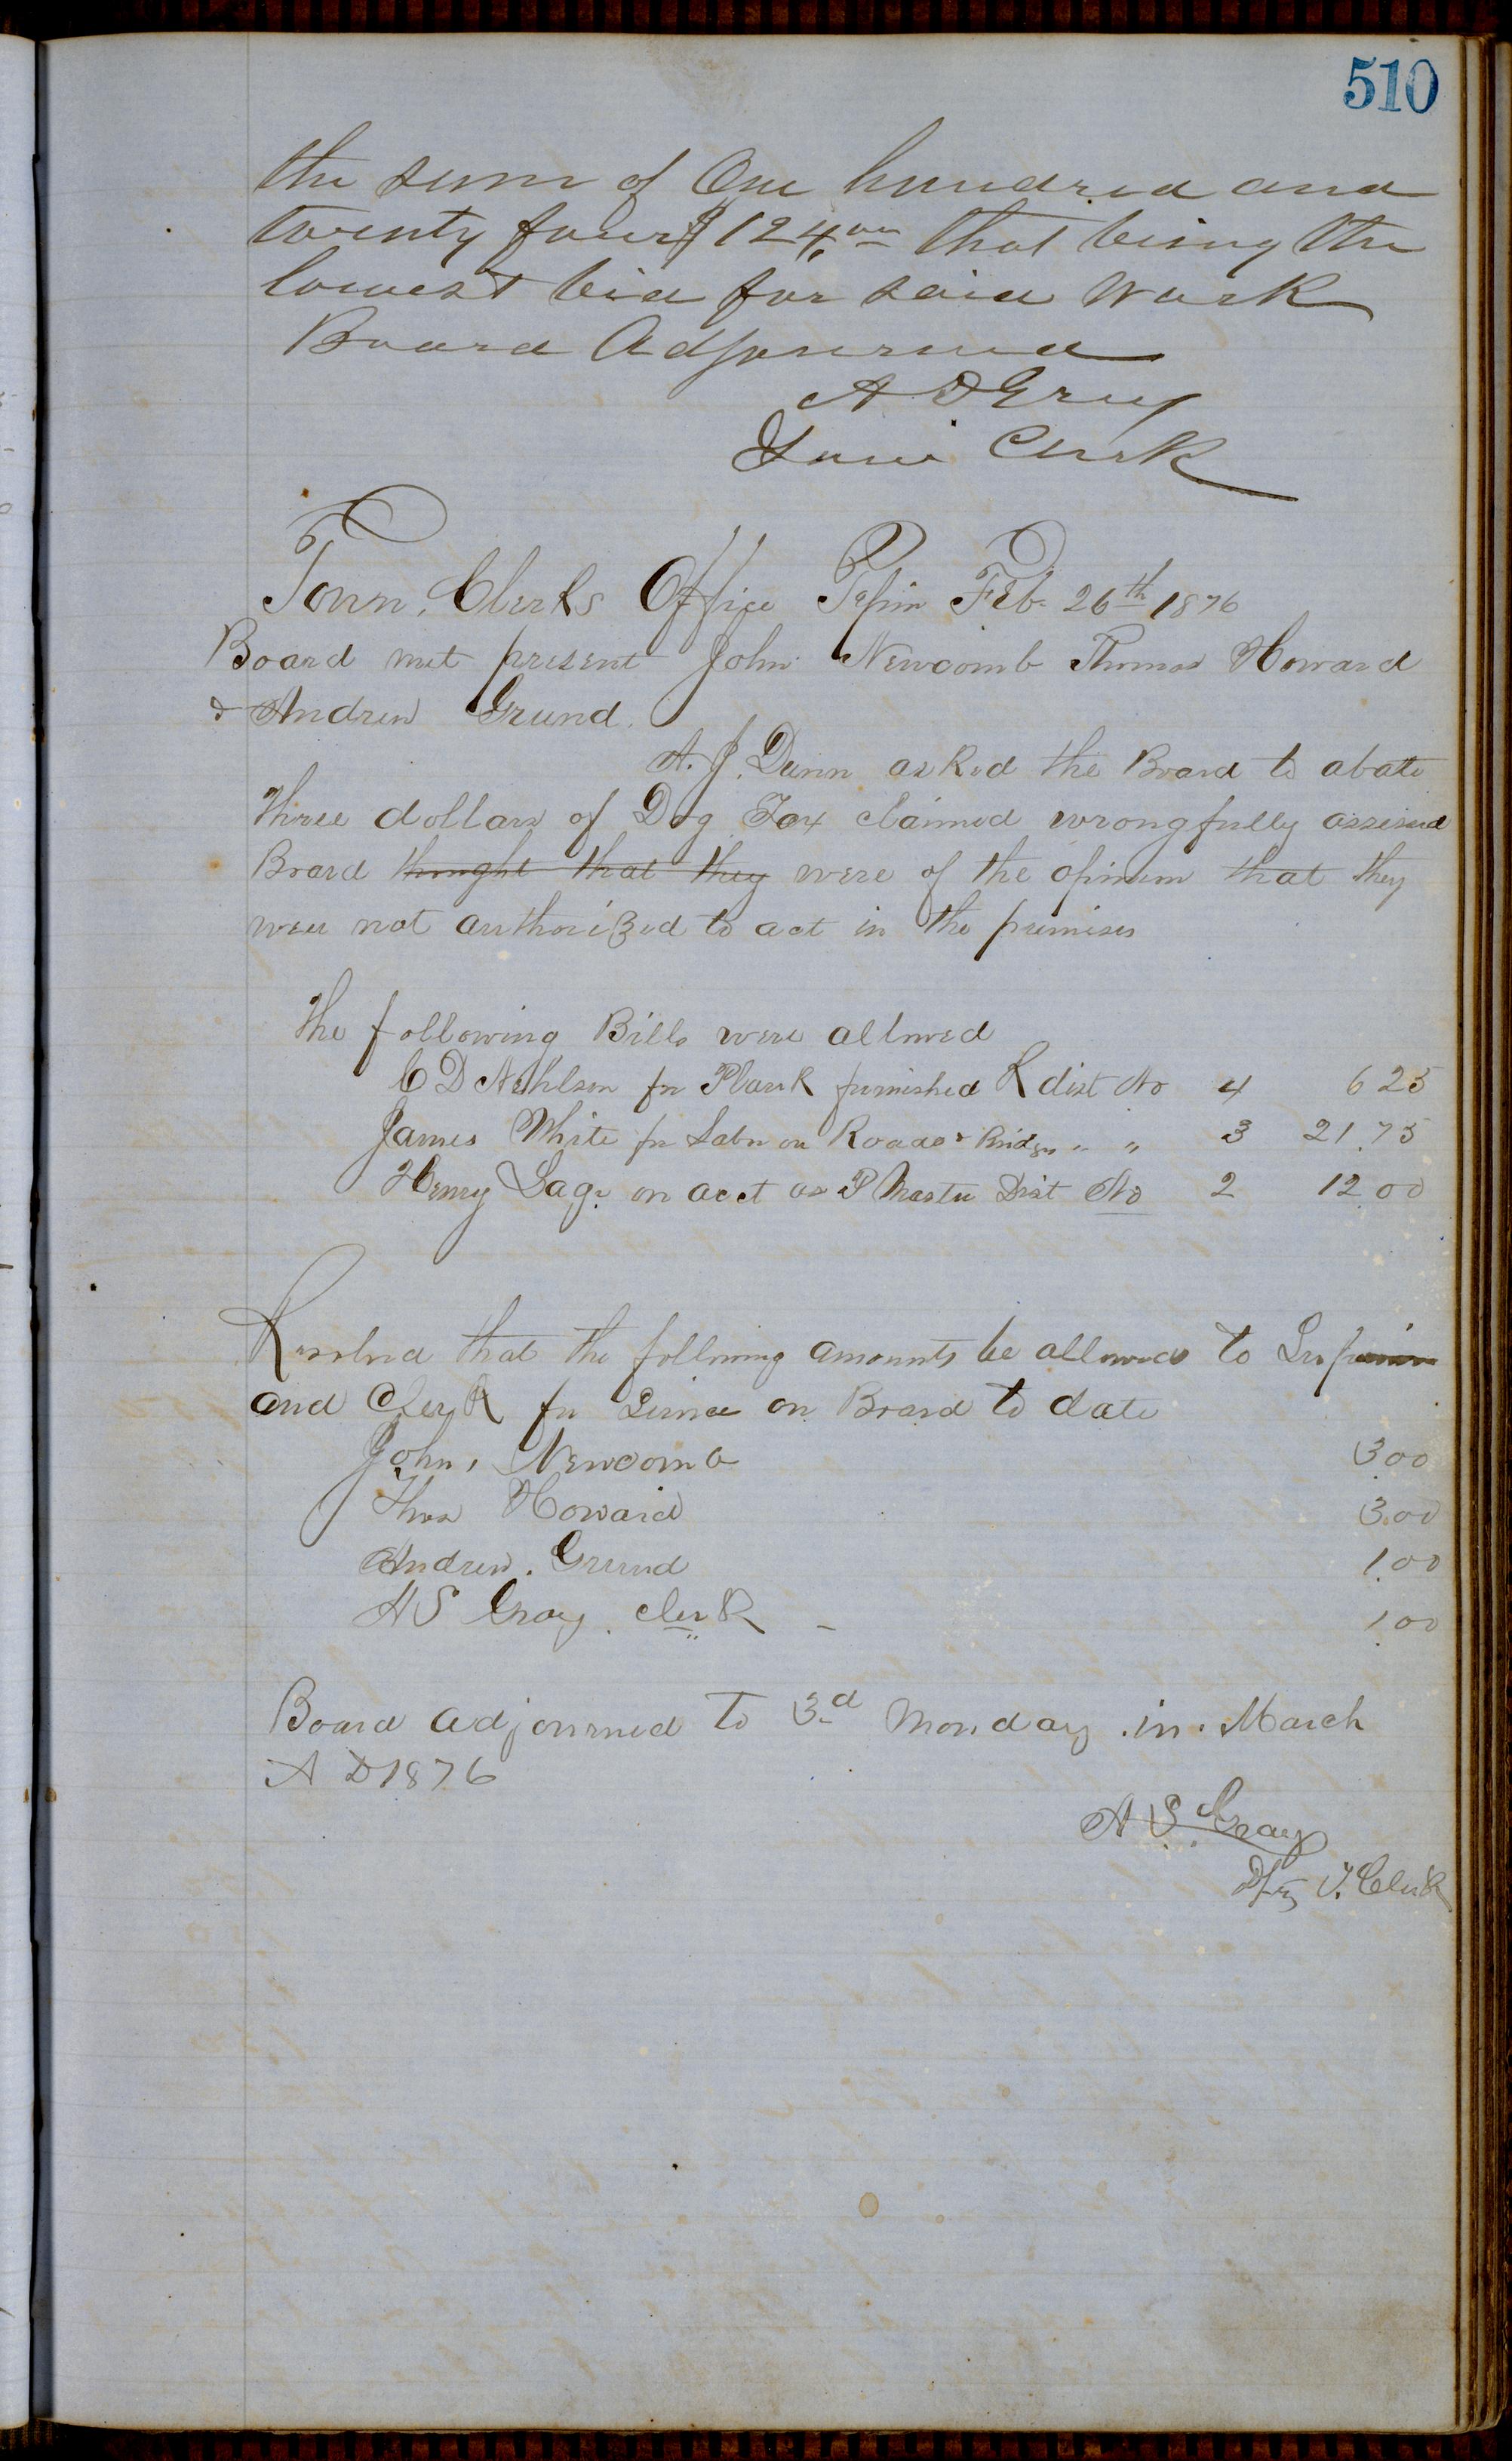 510
the sum of One hundred and
twenty four $124.00 that being the
lowest bid for said Work
Board Adjourned
A D Gray
Town Clerk
Town, Clerks Office Pepin Feb. 26th 1876
Board met present John Newcomb Thomas Howard
& Andrew Grund.
A. J. Dunn asked the Board to abate
Three dollars of Dog Tax claimed wrongfully assessed
Board thought that they were of the opinion that they
were not authorized to act in the premises
The following Bills were allowed
C D Nehlson for Plank furnished R dist No 4 6 25
James White for Labor on Roads & Bridges " " 3 21.75
Henry Sage on acct as P Master Dist No 2 12 00
Resolved that the following amounts be allowed to
and Clerk for Service on Board to date
John, Newcomb 3.00
Thos Howard 3.00
Andrew. Grund 1.00
A S Gray. Clerk - 1.00
Board adjourned to 3d Monday .in. March
A D 1876
A S Gray
Dpty T. Clerk